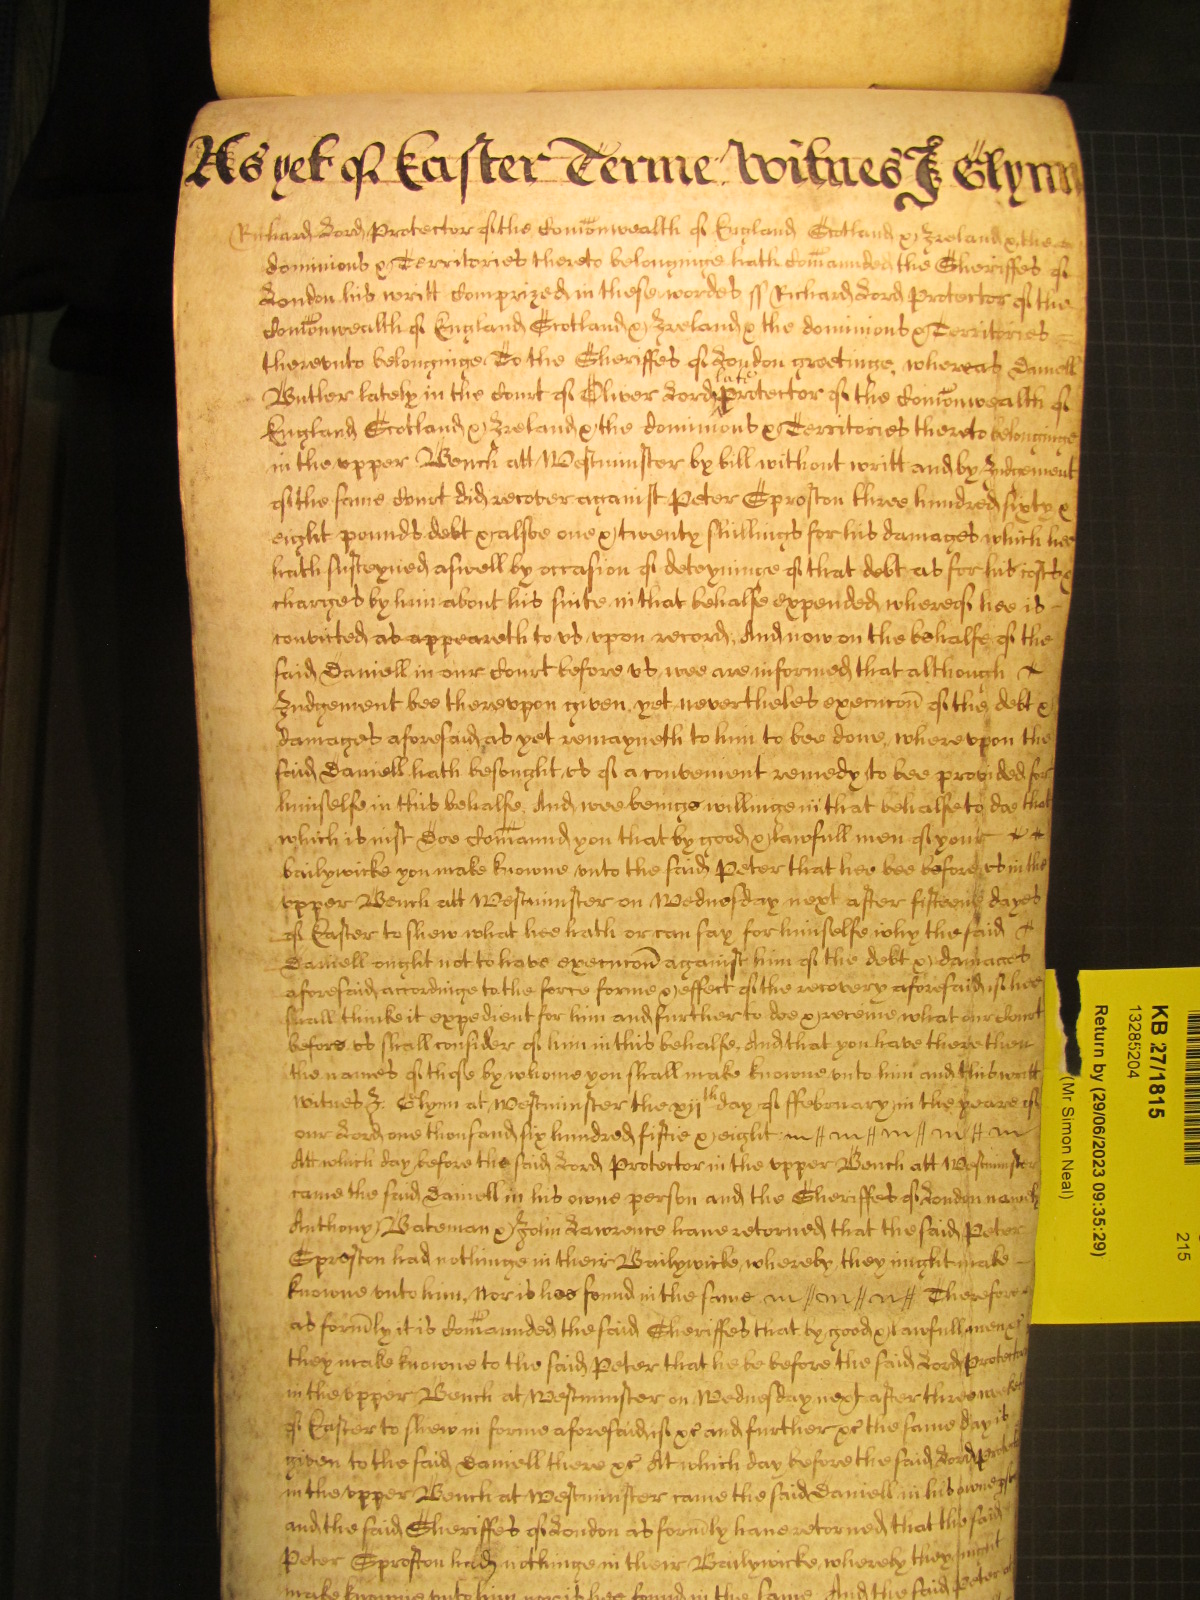 As yet of Easter Terme Witnes J Glynn
Richard Lord Protector of the Comonwealth of England Scotland & Ireland & the
dominions & Territories thereto belonginge hath Comaunded the Sheriffes of
London his writt Comprized in these wordes ss Richard Lord Protector of the
Comonwealth of England Scotland & Ireland & the dominions & Territories
therevnto belonginge To the Sheriffes of London greetinge whereas Daniell
Butler lately in the Court of Oliver Lord late Protector of the Comonwealth of
England Scotland & Ireland & the dominions & Territories thereto belonginge
in the vpper Bench att Westminster by bill without writt and by Judgement
of the same Court did recover against Peter Sproston three hundred sixty &
eight pounds debt & alsoe one & twenty shillings for his damages which hee
hath susteyned aswell by occasion of deteyninge of that debt as for his costs &
charges by him about his suite in that behalfe expended whereof hee is
convicted as appeareth to vs vpon record, And now on the behalfe of the
said Daniell in our Court before vs, wee are informed that although
Judgement bee therevpon given, yet neverthelés execucon of the debt &
damages aforesaid as yet remayneth to him to bee done, wherevpon the
said Daniell hath besought vs of a convenient remedy to bee provided for
himselfe in this behalfe, And wee beinge willinge in that behalfe to doe that
which is iust Doe Comaund you that by good & lawfull men of your
bailywicke you make knowne vnto the said Peter that hee bee before vs in the
vpper Bench att Westminster on Wednesday next after fifteene dayes
of Easter to shew what hee hath or can say for himselfe why the said
Daniell ought not to have execucon against him of the debt & damages
aforesaid accordinge to the force forme & effect of the recovery aforesaid if hee
shall thinke it expedient for him and further to doe & receive what our Court
before vs shall consider of him in this behalfe. And that you have there then
the names of those by whome you shall make knowne vnto him and this writt
witnes J. Glynn at Westminster the xiith day of ffebruary in the yeare of
our Lord one thousand six hundred fiftie & eight
Att which day before the said Lord Protector in the vpper Bench att Westminster
came the said Daniell in his owne person and the Sheriffes of London namely
Anthony Bateman & John Lawrence have retorned that the said Peter
Sproston had nothinge in their Bailywicke whereby they might make
knowne vnto him, Nor is hee found in the same Therefore
as formly it is Comaunded the said Sheriffes that by good & lawfull men &c
they make knowne to the said Peter that he be before the said Lord Protector
in the vpper Bench at Westminster on Wednesday next after three weekes
of Easter to shew in forme aforesaid if &c and further &c the same day is
given to the said Daniell there &c At which day before the said Lord Protector
in the vpper Bench at Westminster came the said Daniell in his owne
and the said Sheriffes of London as formly have retorned that the said
Peter Sproston had nothinge in their Bailywicke whereby they might
make knowne vnto him nor is hee found in the same. And the said Peter
KB 27/1815
215
13285204
Return by (29/06/2023 09:35:29)
(Mr Simon Neal)